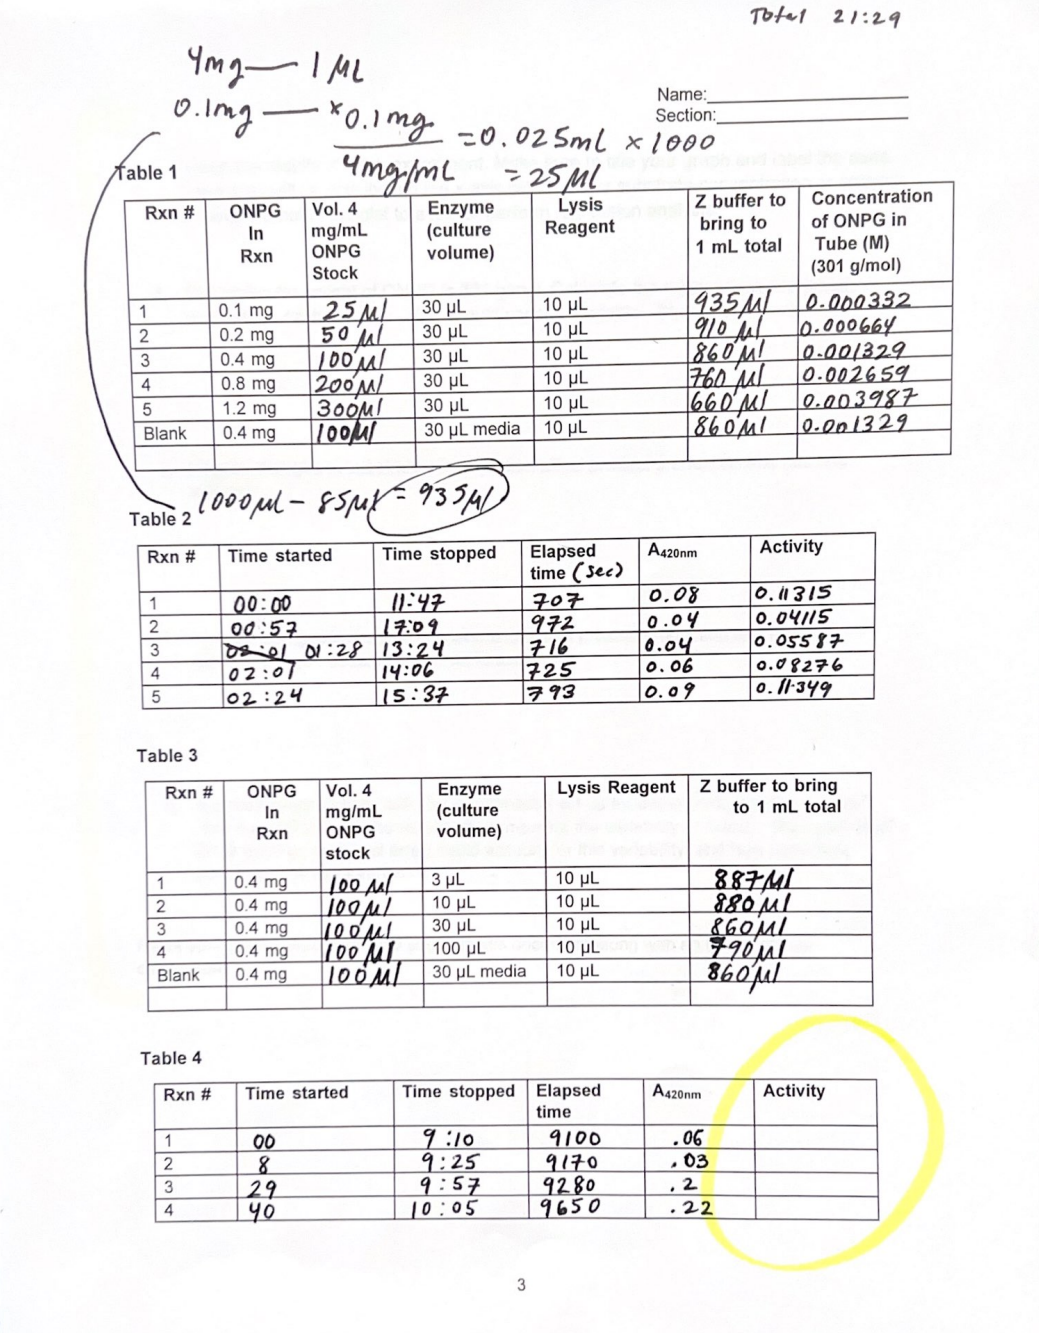 Total 21:29
4mg — 1 ML
0.1mg — x
0.1mg
4mg/mL
=0.025ml x 1000
= 25 Ml
Name:
Section:
Table 1
Rxn # ONPG In Rxn Vol. 4 mg/mL ONPG Stock Enzyme (culture volume) Lysis Reagent Z buffer to bring to 1 mL total Concentration of ONPG in Tube (M) (301 g/mol)
1 0.1 mg 25 Ml 30 µL 10 µL 935 Ml 0.000332
2 0.2 mg 50 Ml 30 µL 10 µL 910 Ml 0.000664
3 0.4 mg 100 Ml 30 µL 10 µL 860 Ml 0.001329
4 0.8 mg 200 Ml 30 µL 10 µL 760 Ml 0.002659
5 1.2 mg 300 Ml 30 µL 10 µL 660 Ml 0.003987
Blank 0.4 mg 100 Ml 30 µL media 10 µL 860 Ml 0.001329
1000 µL - 85 µl = 935 µl
Table 2
Rxn # Time started Time stopped Elapsed time (sec) A420nm Activity
1 00:00 11:47 707 0.08 0.11315
2 00:57 17:09 972 0.04 0.04115
3 02:01 01:28 13:24 716 0.04 0.05587
4 02:01 14:06 725 0.06 0.08276
5 02:24 15:37 793 0.09 0.11349
Table 3
Rxn # ONPG In Rxn Vol. 4 mg/mL ONPG stock Enzyme (culture volume) Lysis Reagent Z buffer to bring to 1 mL total
1 0.4 mg 100 Ml 3 µL 10 µL 887 Ml
2 0.4 mg 100 Ml 10 µL 10 µL 880 Ml
3 0.4 mg 100 Ml 30 µL 10 µL 860 Ml
4 0.4 mg 100 Ml 100 µL 10 µL 790 Ml
Blank 0.4 mg 100 Ml 30 µL media 10 µL 860 Ml
Table 4
Rxn # Time started Time stopped Elapsed time A420nm Activity
1 00 9:10 9100 .06
2 8 9:25 9170 .03
3 29 9:57 9280 .2
4 40 10:05 9650 .22
3